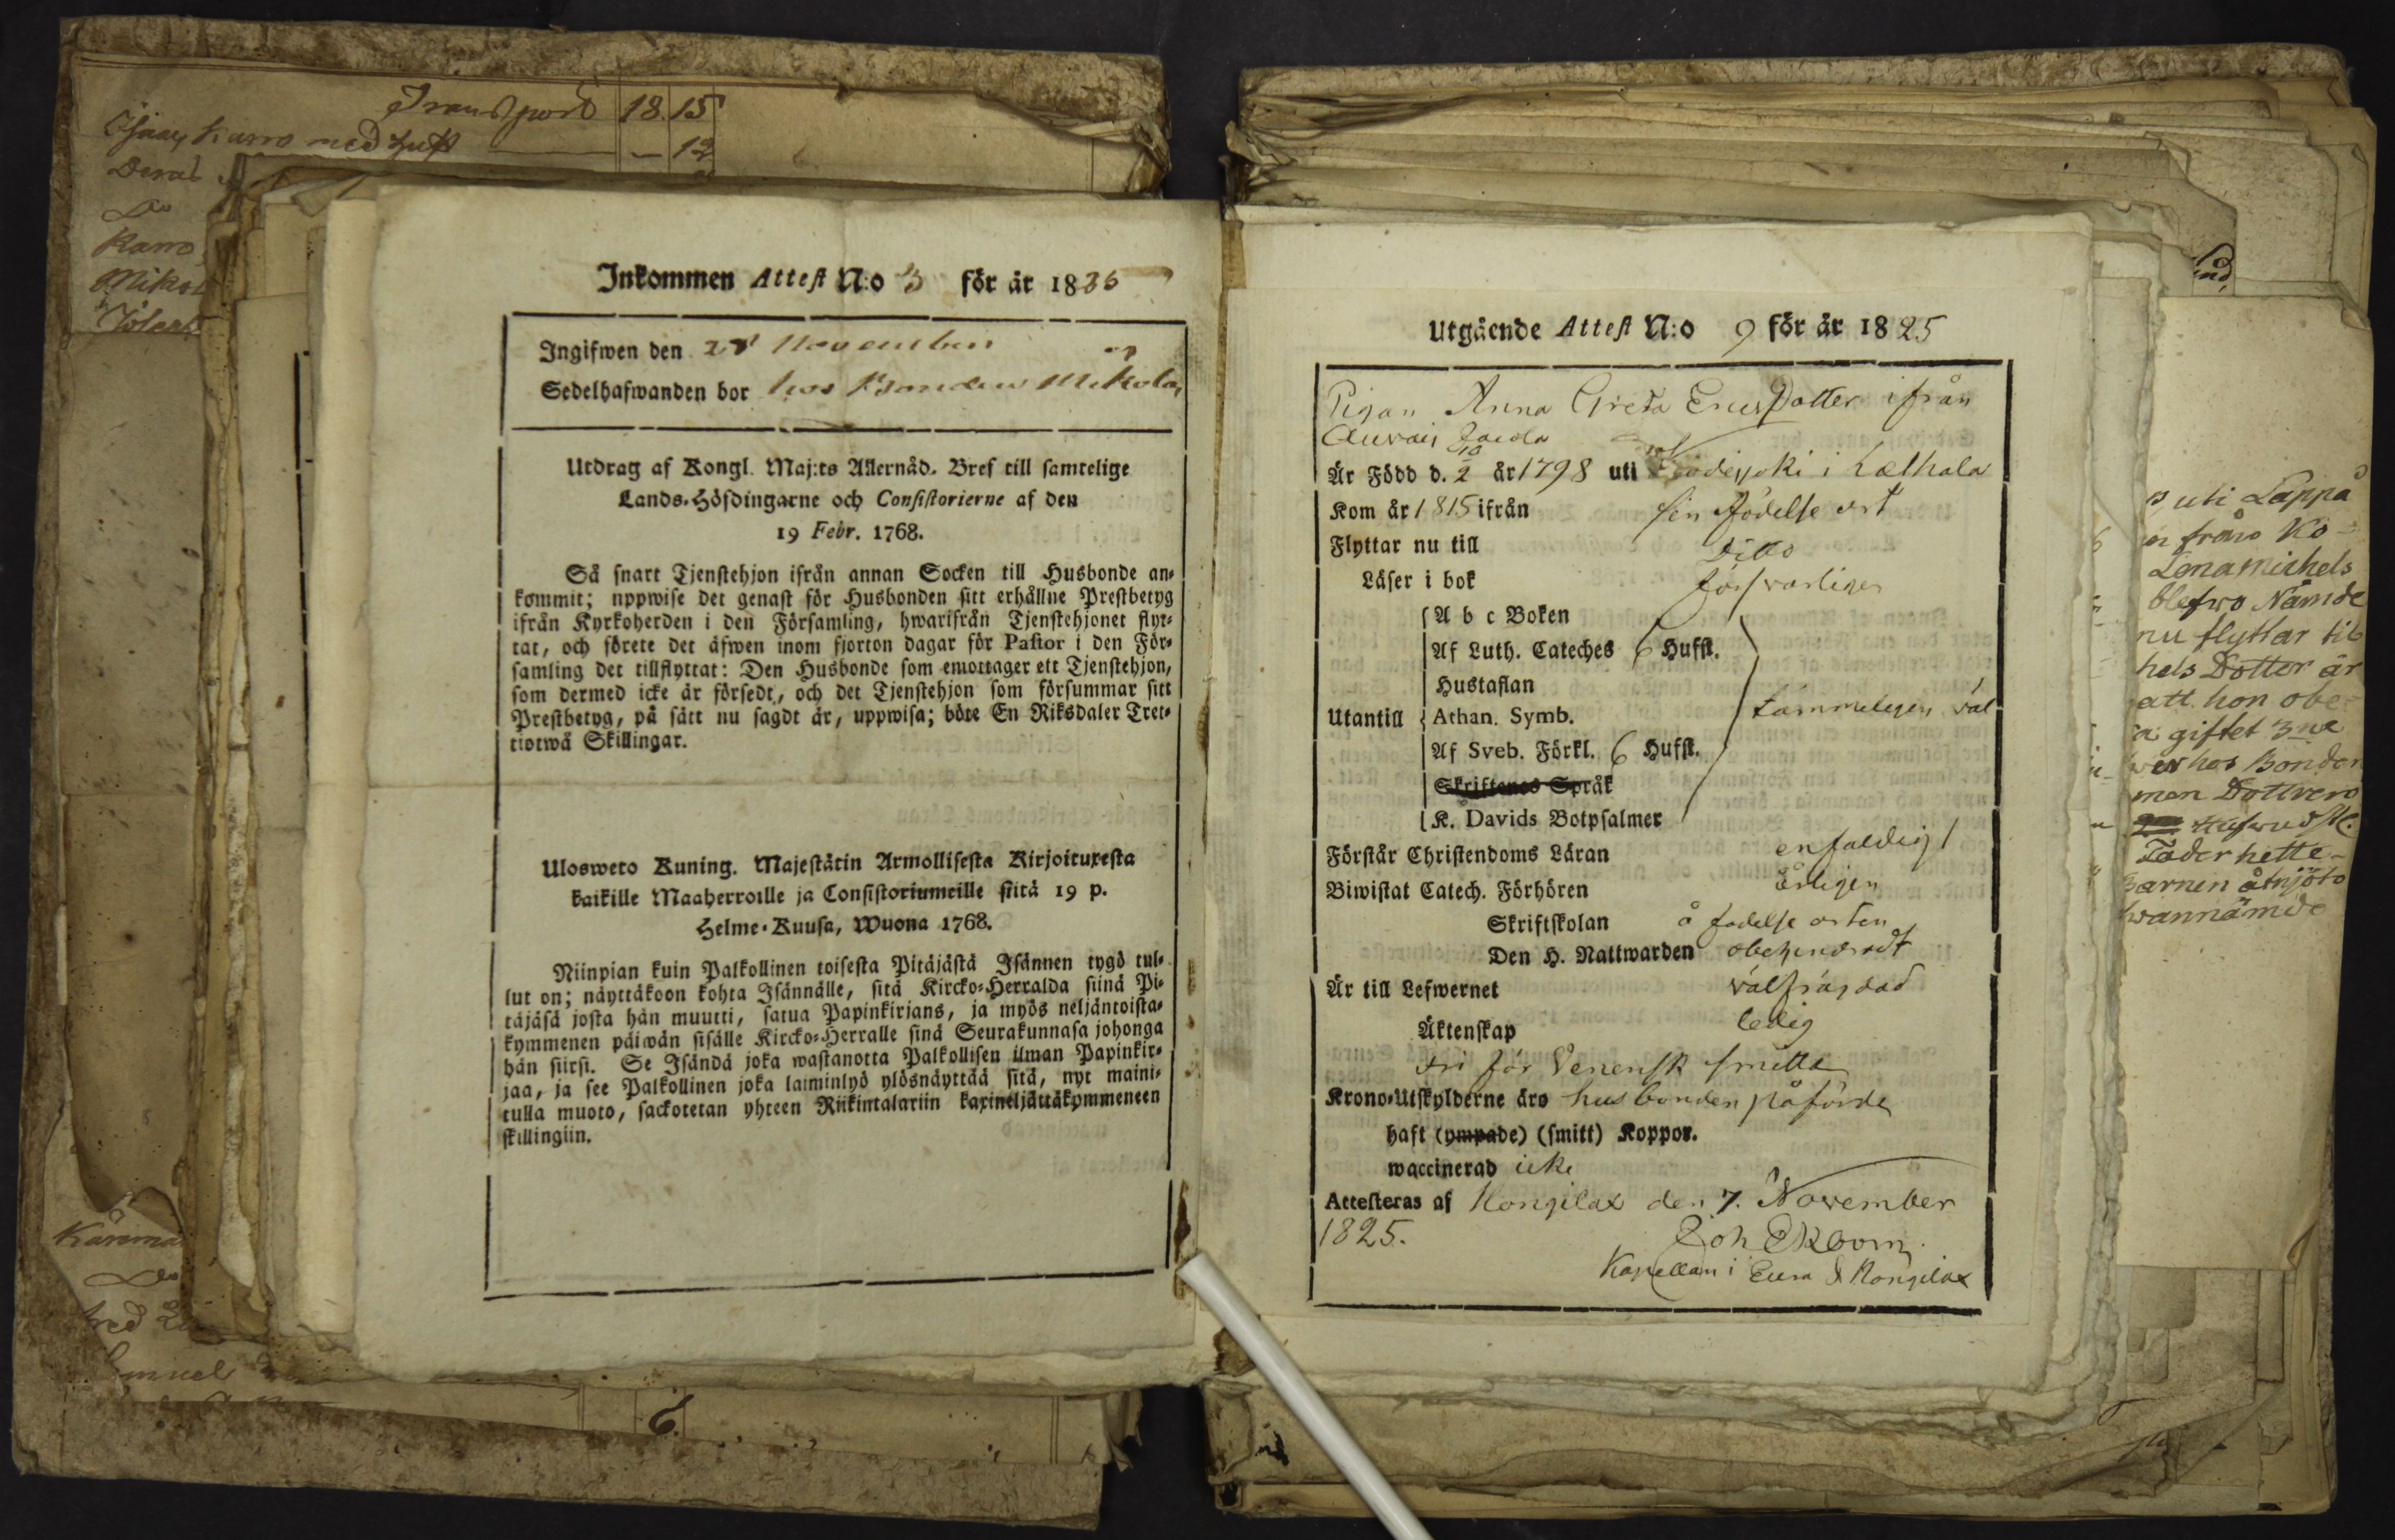 Transport 18. 15
med – 12
Karro
Inkommen Attest N:o 3 för år 1825
Ingifwen den 28 November
Sedelhafwanden bor hos Bonden Mikola
Utdrag af Kongl. Maj:ts Allernåd. Bref till samtelige
Lands-Höfdingarne och Consistorierne af den
19 Febr. 1768.
Så snart Tjenstehjon ifrån annan Socken till Husbonde an-
kommit; uppwise det genast för Husbonden sitt erhållne Prestbetyg
ifrån Kyrkoherden i den Församling, hwarifrån Tjenstehjonet flyt-
tat, och förete det äfwen inom fjorton dagar för Pastor i den För-
samling det tillflyttat: Den Husbonde som emottager ett Tjenstehjon,
som dermed icke är försedt, och det Tjenstehjon som försummar sitt
Prestbetyg, på sätt nu sagdt är, uppwisa; böte En Riksdaler Tret-
tiotwå Skillingar.
Ulosweto Kuning. Majestätin Armollisesta Kirjoituxesta
kaikille Maaherroille ja Consistoriumeille siitä 19 p.
Helme-Kuusa, Wuona 1768.
Niinpian kuin Palkollinen toisesta Pitäjästä Isännen tygö tul-
lut on; näyttäkoon kohta Isännälle, sitä Kircko-Herralda siinä Pi-
täjäsä josta hän muutti, satua Papinkirjans, ja myös neljäntoista-
kymmenen päiwän sisälle Kircko-Herralle sinä Seurakunnasa johonga
hän siirsi. Se Isändä joka wastanotta Palkollisen ilman Papinkir-
jaa, ja see Palkollinen joka laiminlyö ylösnäyttää sitä, nyt maini-
tulla muoto, sackotetan yhteen Riikintalariin kaxineljättäkymmeneen
skillingiin.
6.
Utgående Attest N:o 9 för år 1825
Pigan Anna Greta Ericsdotter ifrån
Auvais Jacola
Är Född d. 2/10 år 1798 uti Hodesjoki i Lethala
Kom år 1815 ifrån sin födelse ort
Flyttar nu till Ditto
Läser i bok försvarligen
A b c Boken
Af Luth. Cateches 6 Hufst.
Hustaflan
Utantill Athan. Symb. tämmeligen väl
Af Sveb. Förkl. 6 Hufst.
Skriftenes Språk
K. Davids Botpsalmer
Förstår Christendoms Läran enfaldigt
Biwistat Catech. Förhören årligen
Skriftskolan å födelse orten
Den H. Nattwarden obehindradt
Är till Lefwernet välfrägdad
Äktenskap ledig
Fri för Venerisk smitta
Krono-Utskylderne äro husbonden påförde
haft (ympade) (smitt) Koppor.
waccinerad icke
Attesteras af Hongilax den 7. November
1825. Joh Ekbom
Kapellan i Eura & Hongilax
uti Lappå
från Ko-
Lena Michels
blefwo Nämde
nu flyttar til
hels Dotter är
att hon obe-
giftet 3ne
hos Bonden
man Dottren
Hufwudst.
Fader hette
Barnen åtnjöto